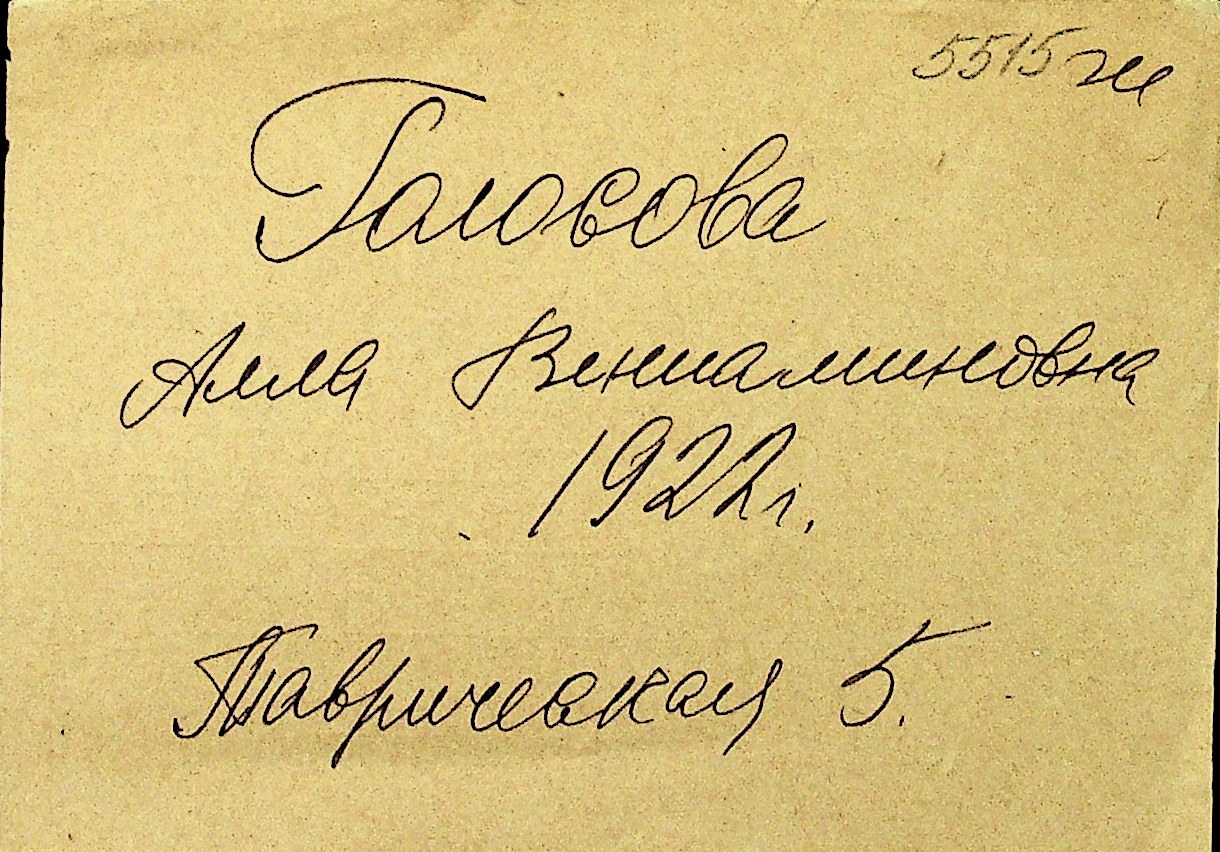 5515ж
Голосова
Алла Вениаминовна
1922г.
Таврическая 5.